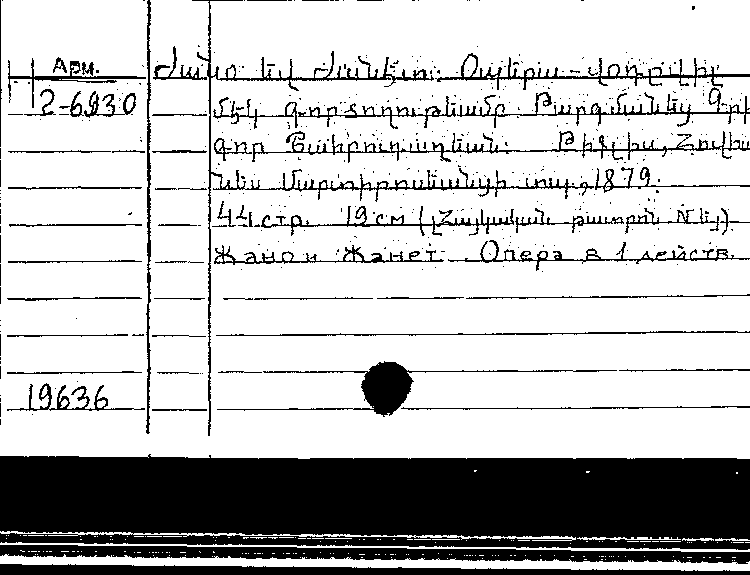 Арм.
2-6930
Ժանօ եվ Ժանէտ: Օպերա-վօդըվիլ
մէկ գործողութեամբ. Թարգմանեց Գրի
գոր Շահբուդաղեան: Թիֆլիս, Հովհա
նես Մարտիրոսեանցի տպ., 1879.
44 стр. 19 см (Հայկական թատրոն №
Жано и Жанет. Опера в 1 действ.
19636